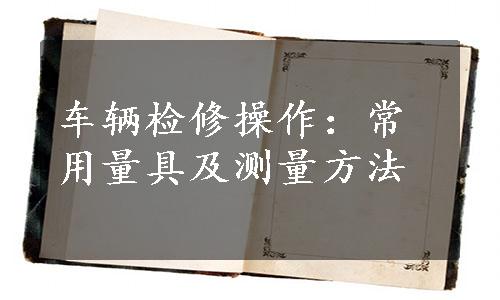 车辆检修操作：常
用量具及测量方法